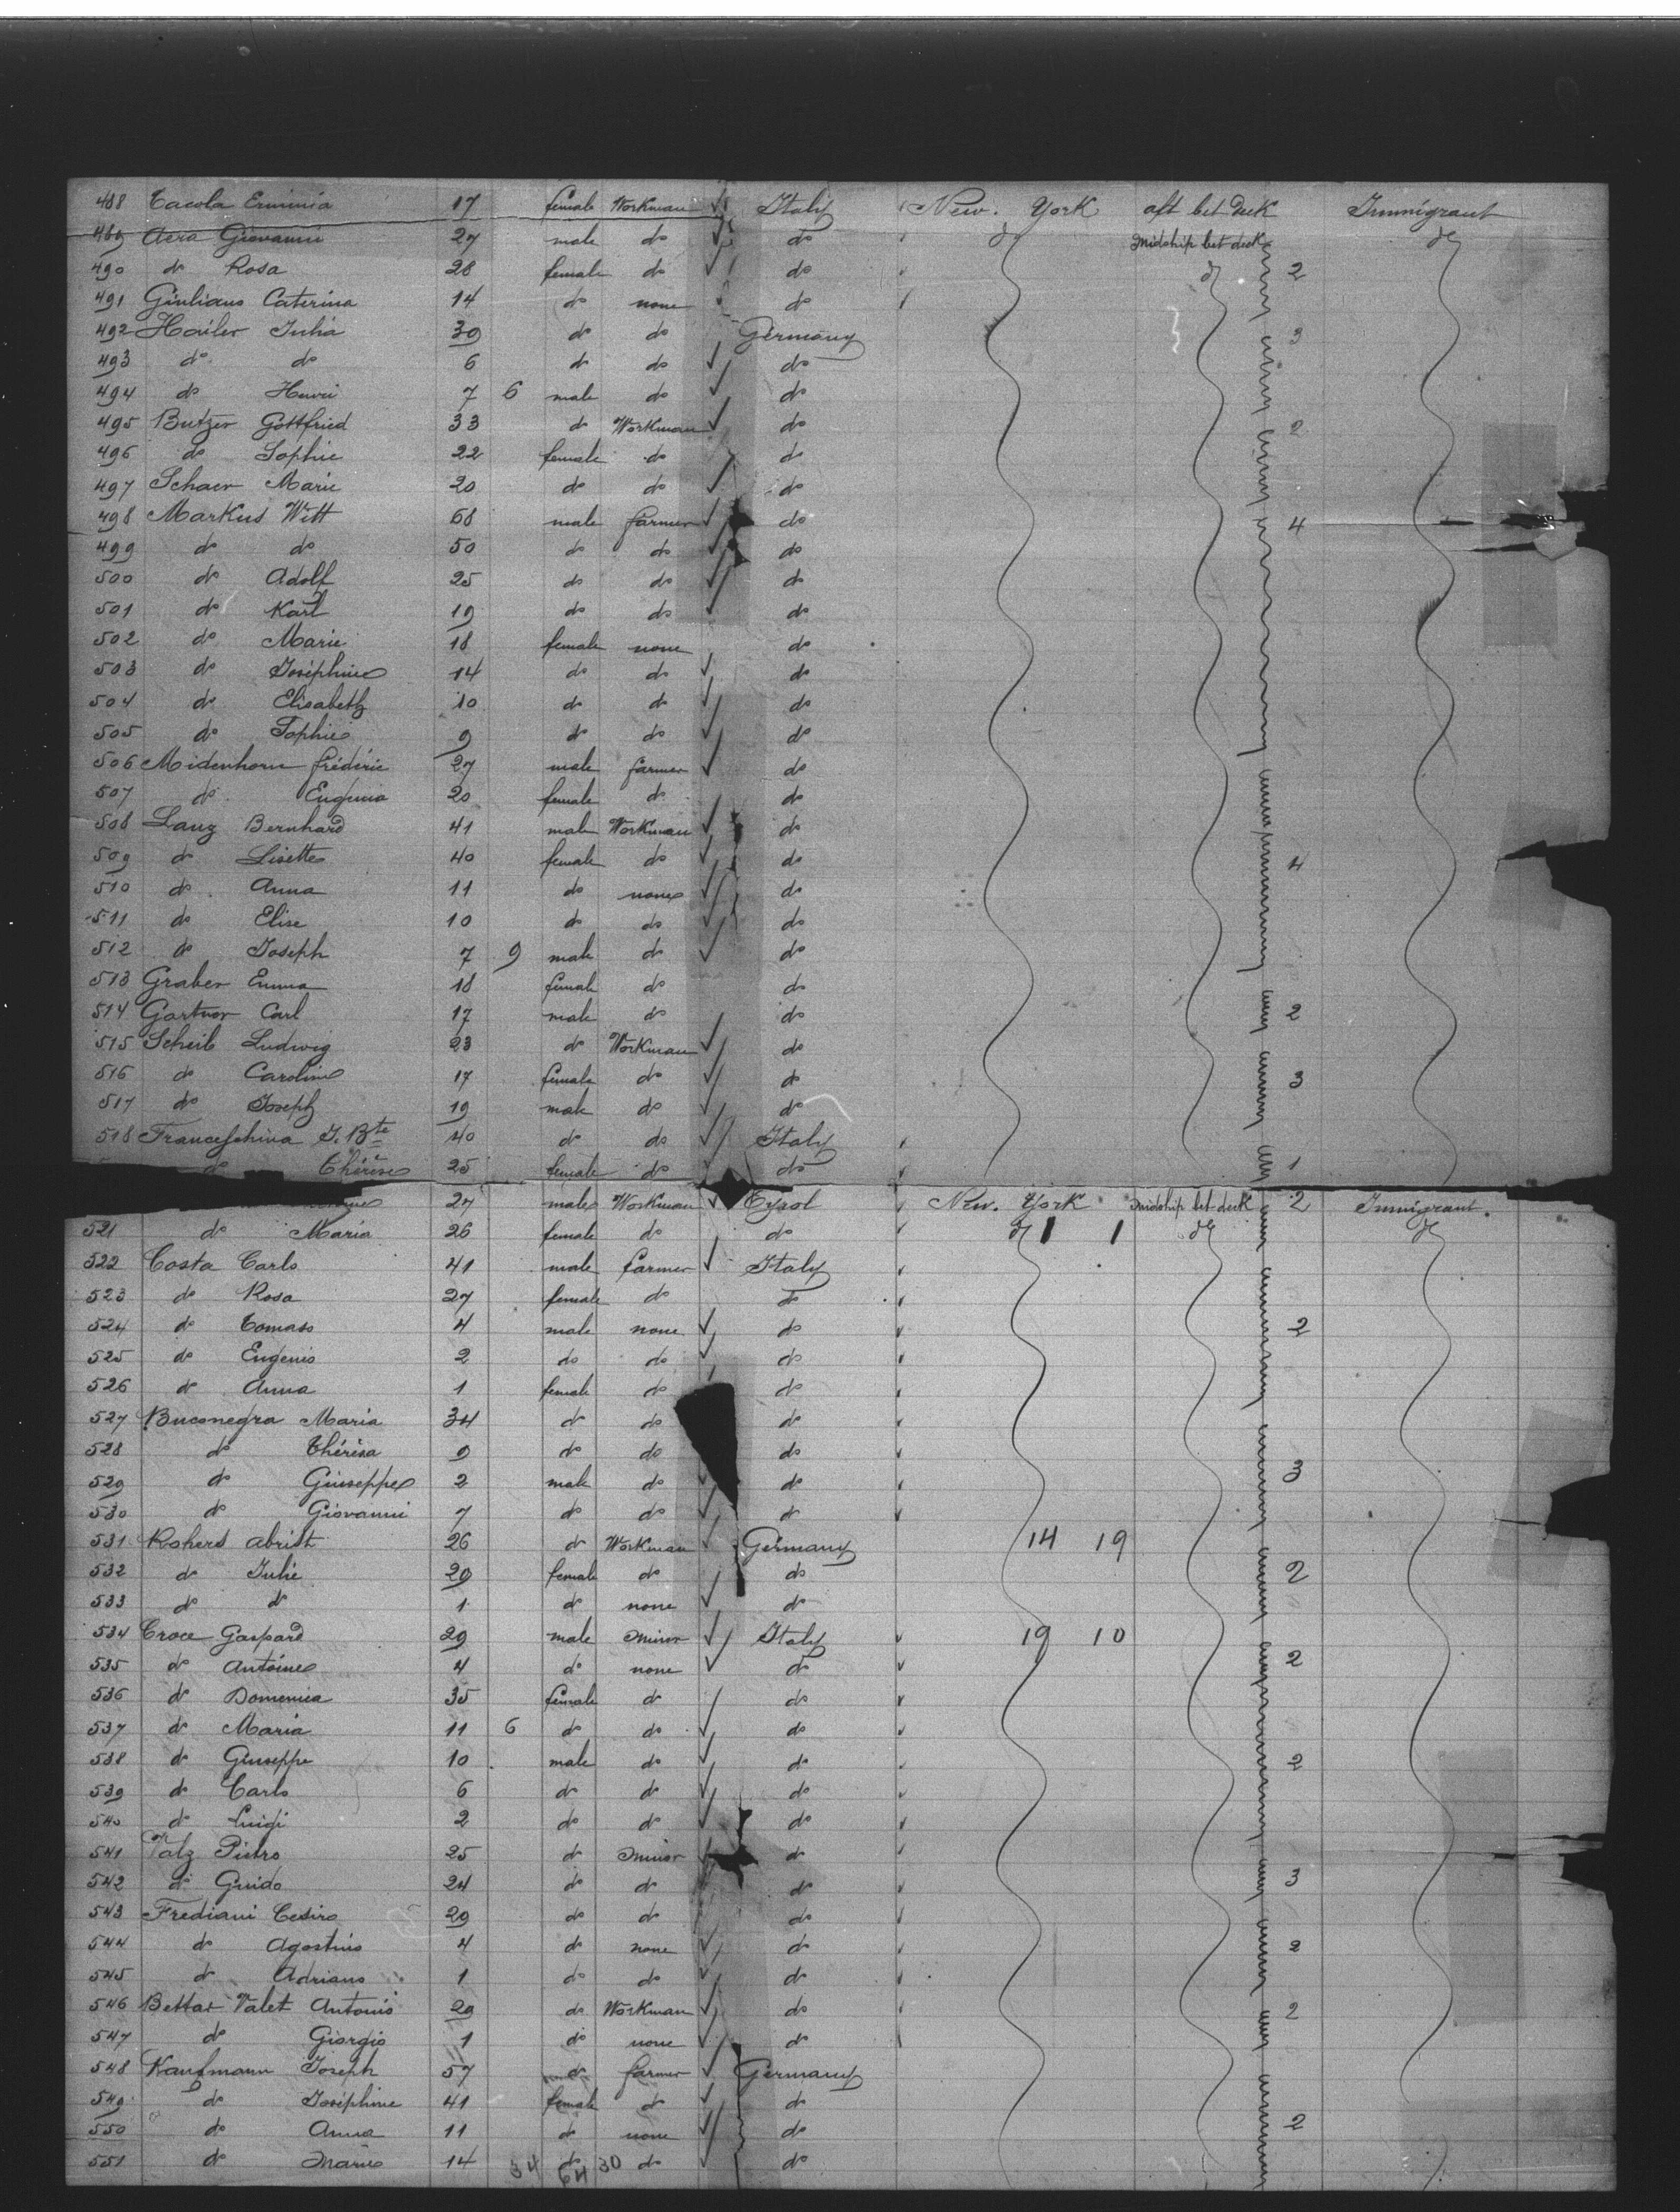 488 Tacola Erminia 17 female Workman Italy New. York aft bet deck Immigrant
489 Aera Giovanni 27 male do do do midship bet deck do
490 do Rosa 28 female do do do 2
491 Giuliano Caterina 14 do none do
492 Hailer Julia 30 do do Germany 3
493 do do 6 do do do
494 do Henri 7 6 male do do
495 Butzer Gottfried 33 do Workman do 2
496 do Sophie 22 female do do
497 Schaer Marie 20 do do do
498 Markus Witt 58 male farmer do 4
499 do do 50 do do do
500 do Adolf 25 do do do
501 do Karl 19 do do do
502 do Marie 18 female none do
503 do Joséphine 14 do do do
504 do Elisabeth 10 do do do
505 do Sophie 9 do do do
506 Midenhorn frédéric 27 male farmer do
507 do Eugenia 20 female do do
508 Lanz Bernhard 41 male Workman do
509 do Lisette 40 female do do 4
510 do Anna 11 do none do
511 do Elise 10 do do do
512 do Joseph 7 9 male do do
513 Graber Emma 18 female do do
514 Gartner Carl 17 male do do 2
515 Scheib Ludwig 23 do Workman do
516 do Caroline 17 female do do 3
517 do Joseph 19 male do do
518 Franceschina J. Bte 40 do do Italy
do Thérèse 25 female do do 1
27 male Workman Tyrol New. York midship bet deck 2 Immigrant.
521 do Maria 26 female do do do 1 1 do do
522 Costa Carlo 41 male farmer Italy
523 do Rosa 27 female do do
524 do Tomaso 4 male none do 2
525 do Eugenio 2 do do do
526 do Anna 1 female do do
527 Buconegra Maria 34 do do do
528 do Thérésa 9 do do do
529 do Giuseppe 2 male do do 3
530 do Giovanni 7 do do do
531 Rohers Abrist 26 do Workman Germany 14 19
532 do Julie 29 female do do 2
533 do do 1 do none do
534 Croce Gaspard 29 male minor Italy 19 10
535 do Antoine 4 do none do 2
536 do Domenica 35 female do do
537 do Maria 11 6 do do do
538 do Giuseppe 10 male do do 2
539 do Carlo 6 do do do
540 do Luigi 2 do do do
541 Valz Pietro 25 do minor do
542 do Guido 24 do do do 3
543 Frediani Cesiro 29 do do do
544 do Agostino 4 do none do 2
545 do Adriano 1 do do do
546 Bettar Valet Antonio 29 do Workman do 2
547 do Giorgio 1 do none do
548 Kaufmann Joseph 57 do farmer Germany
549 do Joséphine 41 female do do
550 do Anna 11 do none do 2
551 do Marie 14 do do do
34 64 30